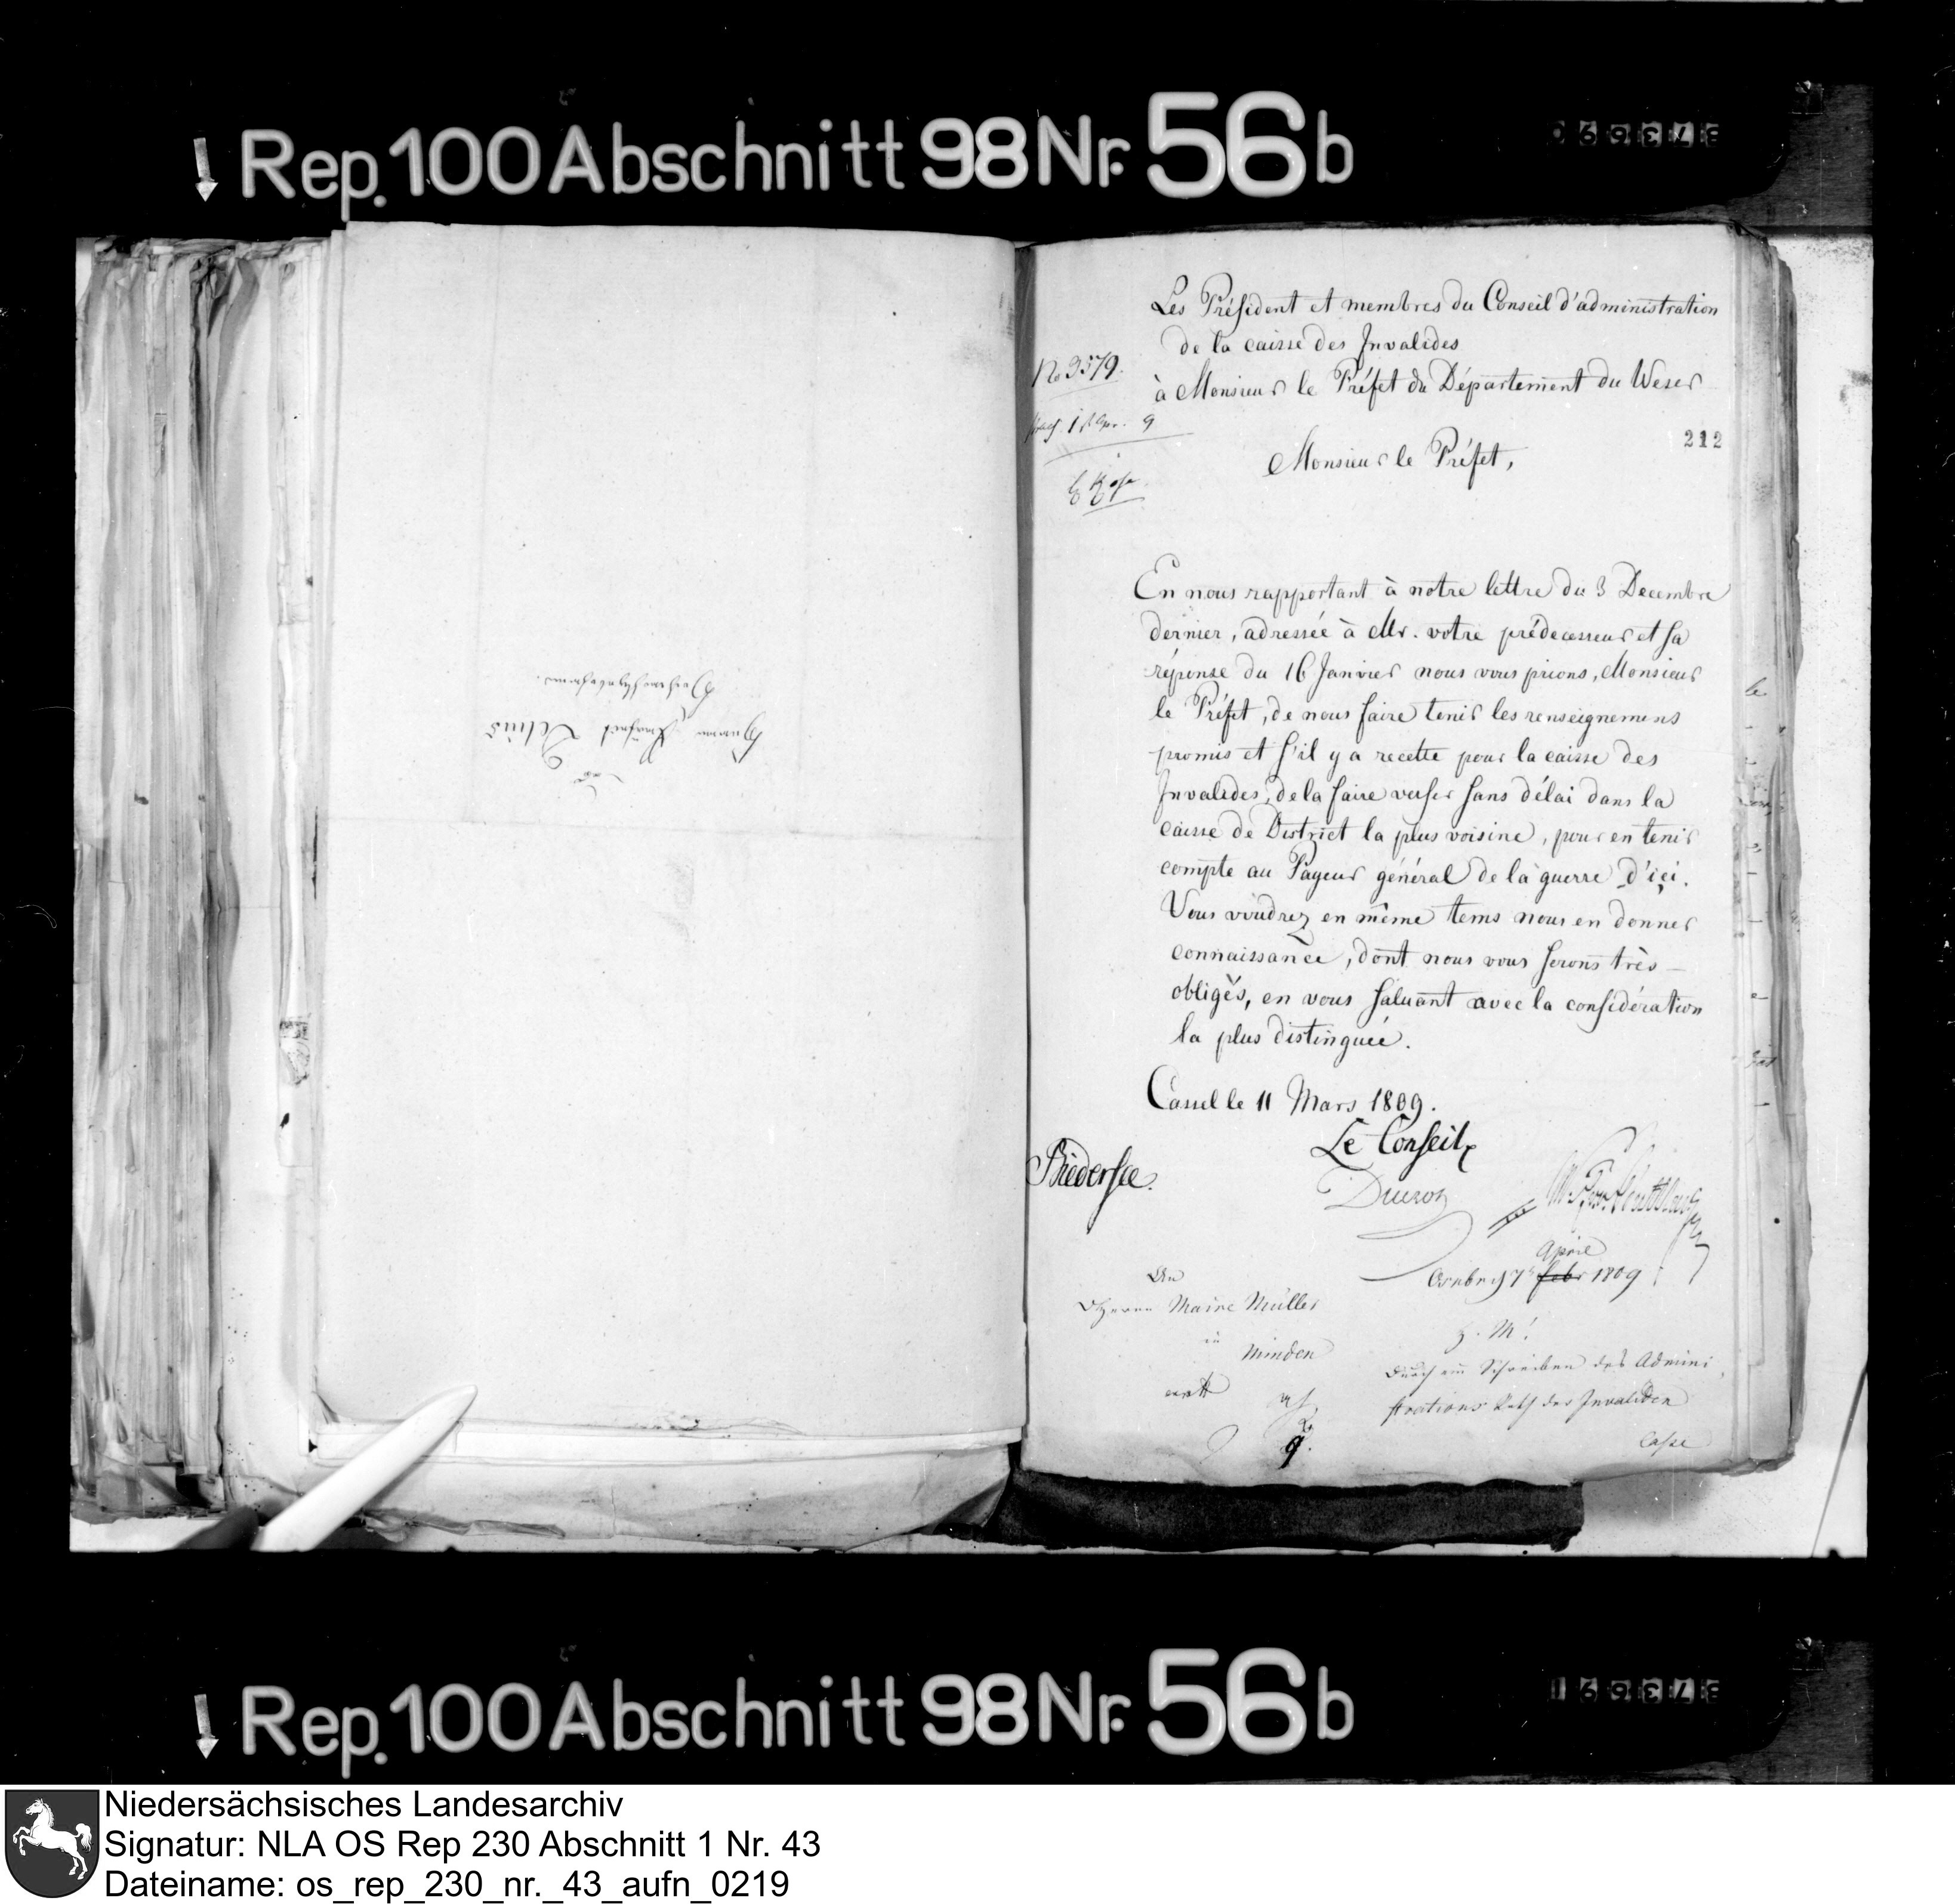 Rep. 100 Abschnitt 98 Nr. 56b
Herrn Präfect Delius
Hochwohlgebohren.
Les Président et membres du Conseil d'administration
de la caisse des Invalides
à Monsieur le Préfet du Département du Weser
No 3579.
9
212
Monsieur le Préfet,
En nous rapportant à notre lettre du 3 Decembre
dernier, adressée à Mr. votre prédecesseur et sa
réponse du 16 Janvier nous vous prions, Monsieur
le Préfet, de nous faire tenir les renseignemens
promis et s'il y a recette pour la caisse des
Invalides, de la faire verser sans délai dans la
caisse de District la plus voisine, pour en tenir
compte au Payeur général de la guerre d'içi.
Vous voudrez en même tems nous en donner
connaissance, dont nous vous serons très-
obligés, en vous saluant avec la considération
la plus distinguée.
Cassel le 11 Mars 1809.
Le Conseil
Biedersee.
Duroz
April
Osnbrg 7 febr 1809
An
Herrn Maire Müller
in
Minden
H. M!
Durch ein Schreiben des Admini
strations Raths der Invaliden
Casse
Rep. 100 Abschnitt 98 Nr. 56b
Niedersächsisches Landesarchiv
Signatur: NLA OS Rep 230 Abschnitt 1 Nr. 43
Dateiname: os_rep_230_nr._43_aufn_0219